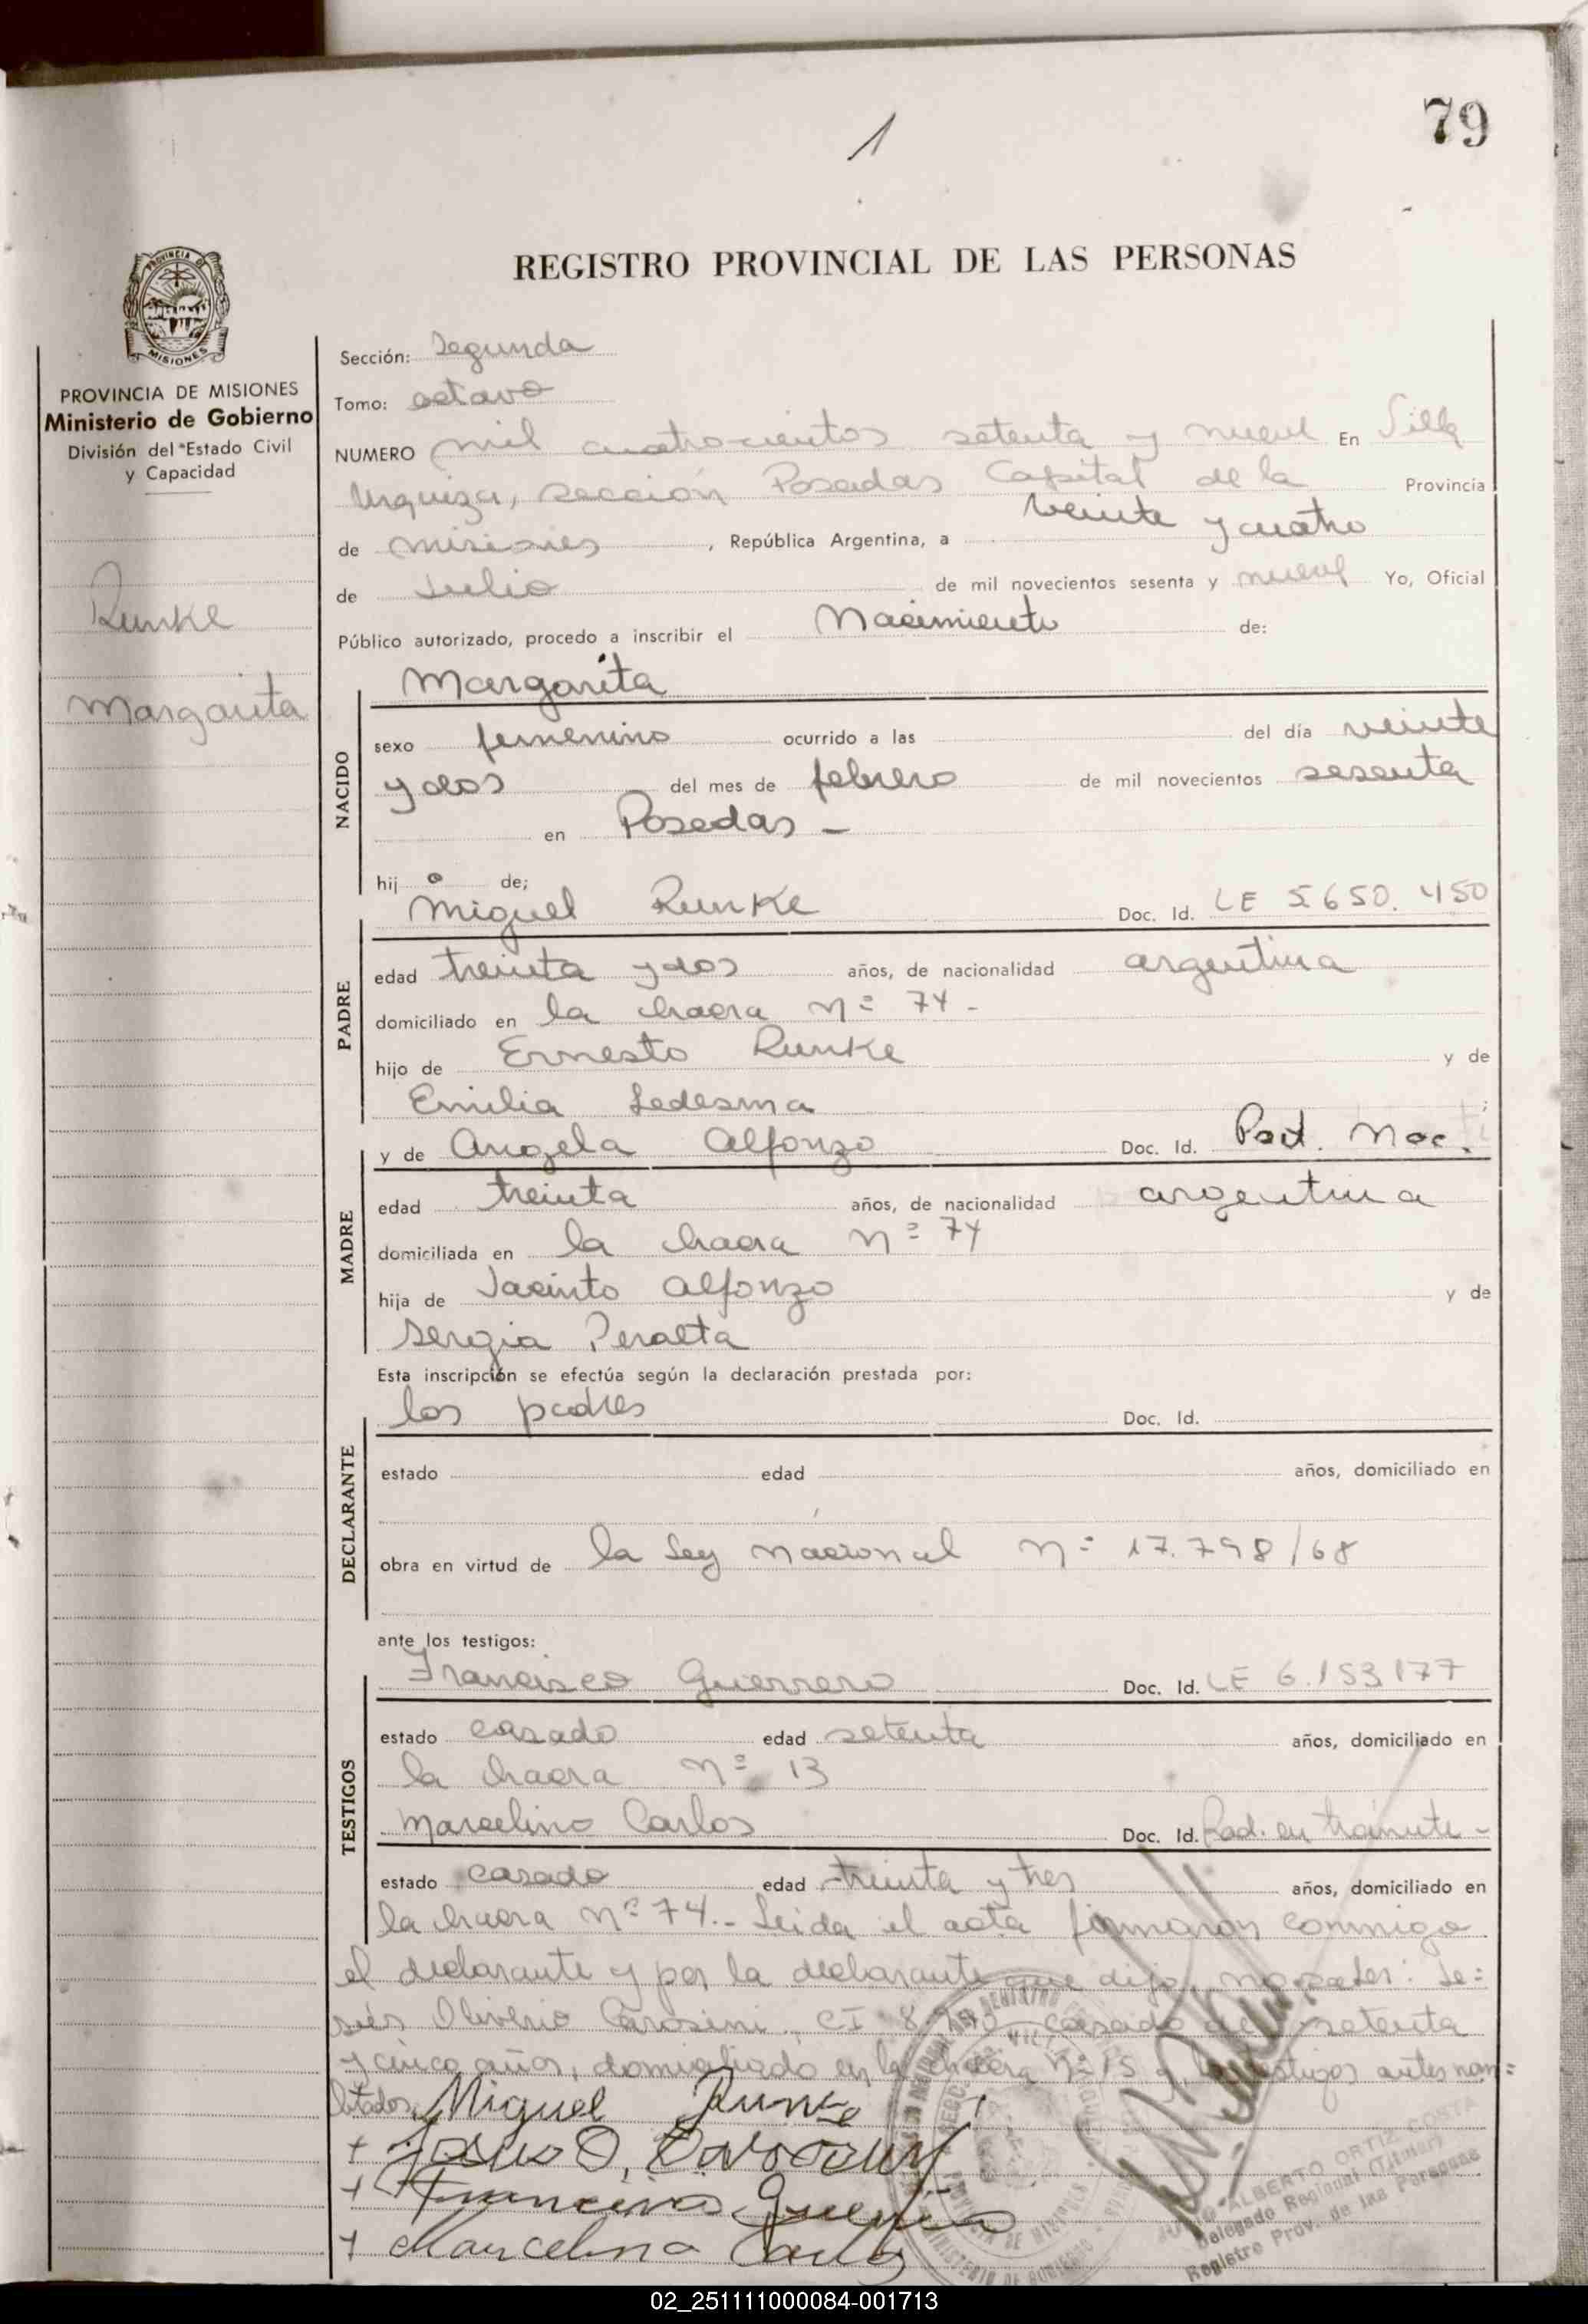 1
79
REGISTRO PROVINCIAL DE LAS PERSONAS
PROVINCIA DE MISIONES
Ministerio de Gobierno
División del Estado Civil
y Capacidad
Runke
Margarita
Sección: Segunda
Tomo: octavo
NUMERO mil cuatrocientos setenta y nueve En Villa
Urquiza, sección Posadas Capital de la Provincia
de misiones, República Argentina, a veinte y cuatro
de Julio de mil novecientos sesenta y nueve Yo, Oficial
Público autorizado, procedo a inscribir el Nacimiento de:
NACIDO
Margarita
sexo femenino ocurrido a las del día veinte
y dos del mes de febrero de mil novecientos sesenta
en Posadas -
hij a de;
PADRE
Miguel Runke Doc. Id. LE 5.650.450
edad treinta y dos años, de nacionalidad argentina
domiciliado en la chacra nº 74 -
hijo de Ernesto Runke y de
Emilia Ledesma
MADRE
y de Angela Alfonzo Doc. Id.
edad treinta años, de nacionalidad argentina
domiciliada en la chacra nº 74
hija de Jacinto Alfonzo y de
Sergia Peralta
Esta inscripción se efectúa según la declaración prestada por:
DECLARANTE
los padres Doc. Id.
estado edad años, domiciliado en
obra en virtud de la Ley nacional nº 17.798/68
ante los testigos:
TESTIGOS
Francisco Guerrero Doc. Id. LE 6.153177
estado casado edad setenta años, domiciliado en
la chacra nº 13
Marcelino Carlos Doc. Id. Rad. en trámite -
estado casado edad treinta y tres años, domiciliado en
la chacra nº 74.- Leida el acta firmaron conmigo
el declarante y por la declarante que dijo no saber: Je=
sús Oliverio CI casado de setenta
y cinco años, domiciliado en la chacra nº 15 y los testigos antes nom=
brados
Miguel Runke
+ Jesus O.
+ Francisco Guerrero
+ Marcelino Carlos
JULIO ALBERTO ORTIZ COSTA
Delegado Regional (Titular)
Registro Prov. de las Personas
02_251111000084-001713